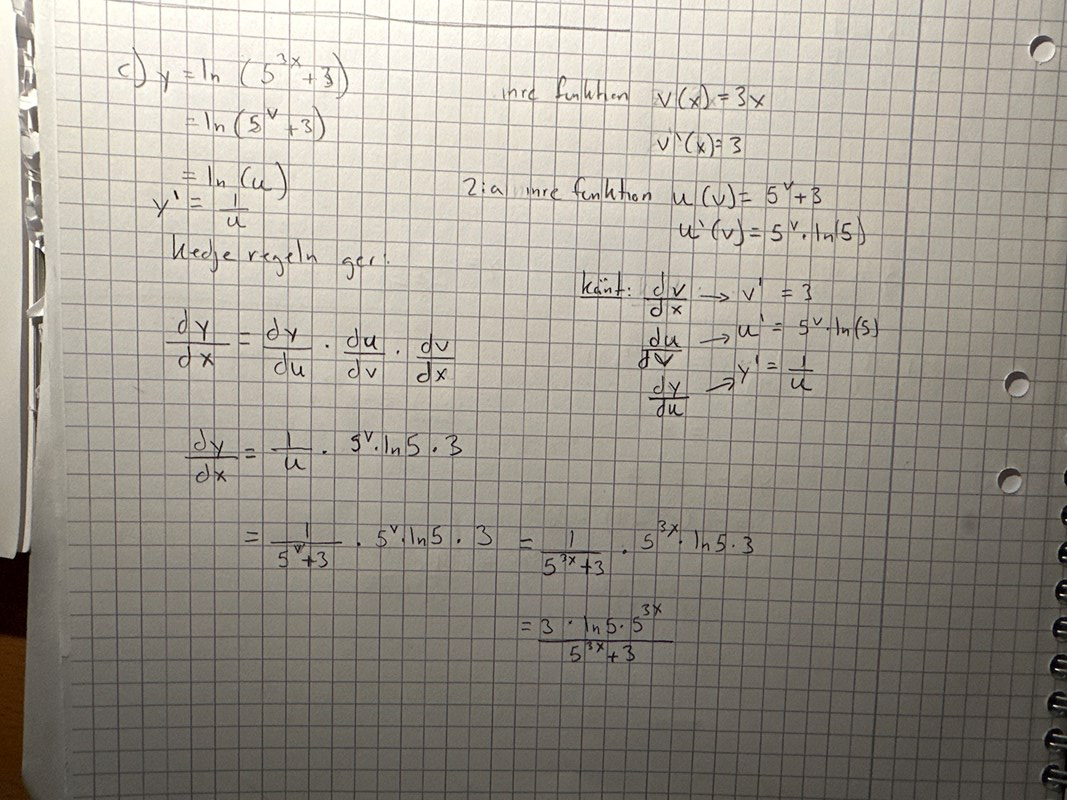 c) y = ln (5^{3x} + 3)
= ln (5^v + 3)
= ln (u)
y' = 1/u
inre funktion v(x) = 3x
v'(x) = 3
2:a inre funktion u(v) = 5^v + 3
u'(v) = 5^v · ln(5)
Kedje regeln ger:
känt: dv/dx → v' = 3
du/dv → u' = 5^v · ln(5)
dy/du → y' = 1/u
dy/dx = dy/du · du/dv · dv/dx
dy/dx = 1/u · 5^v · ln5 · 3
= 1/(5^v + 3) · 5^v · ln5 · 3 = 1/(5^{3x} + 3) · 5^{3x} · ln5 · 3
= (3 · ln5 · 5^{3x})/(5^{3x} + 3)